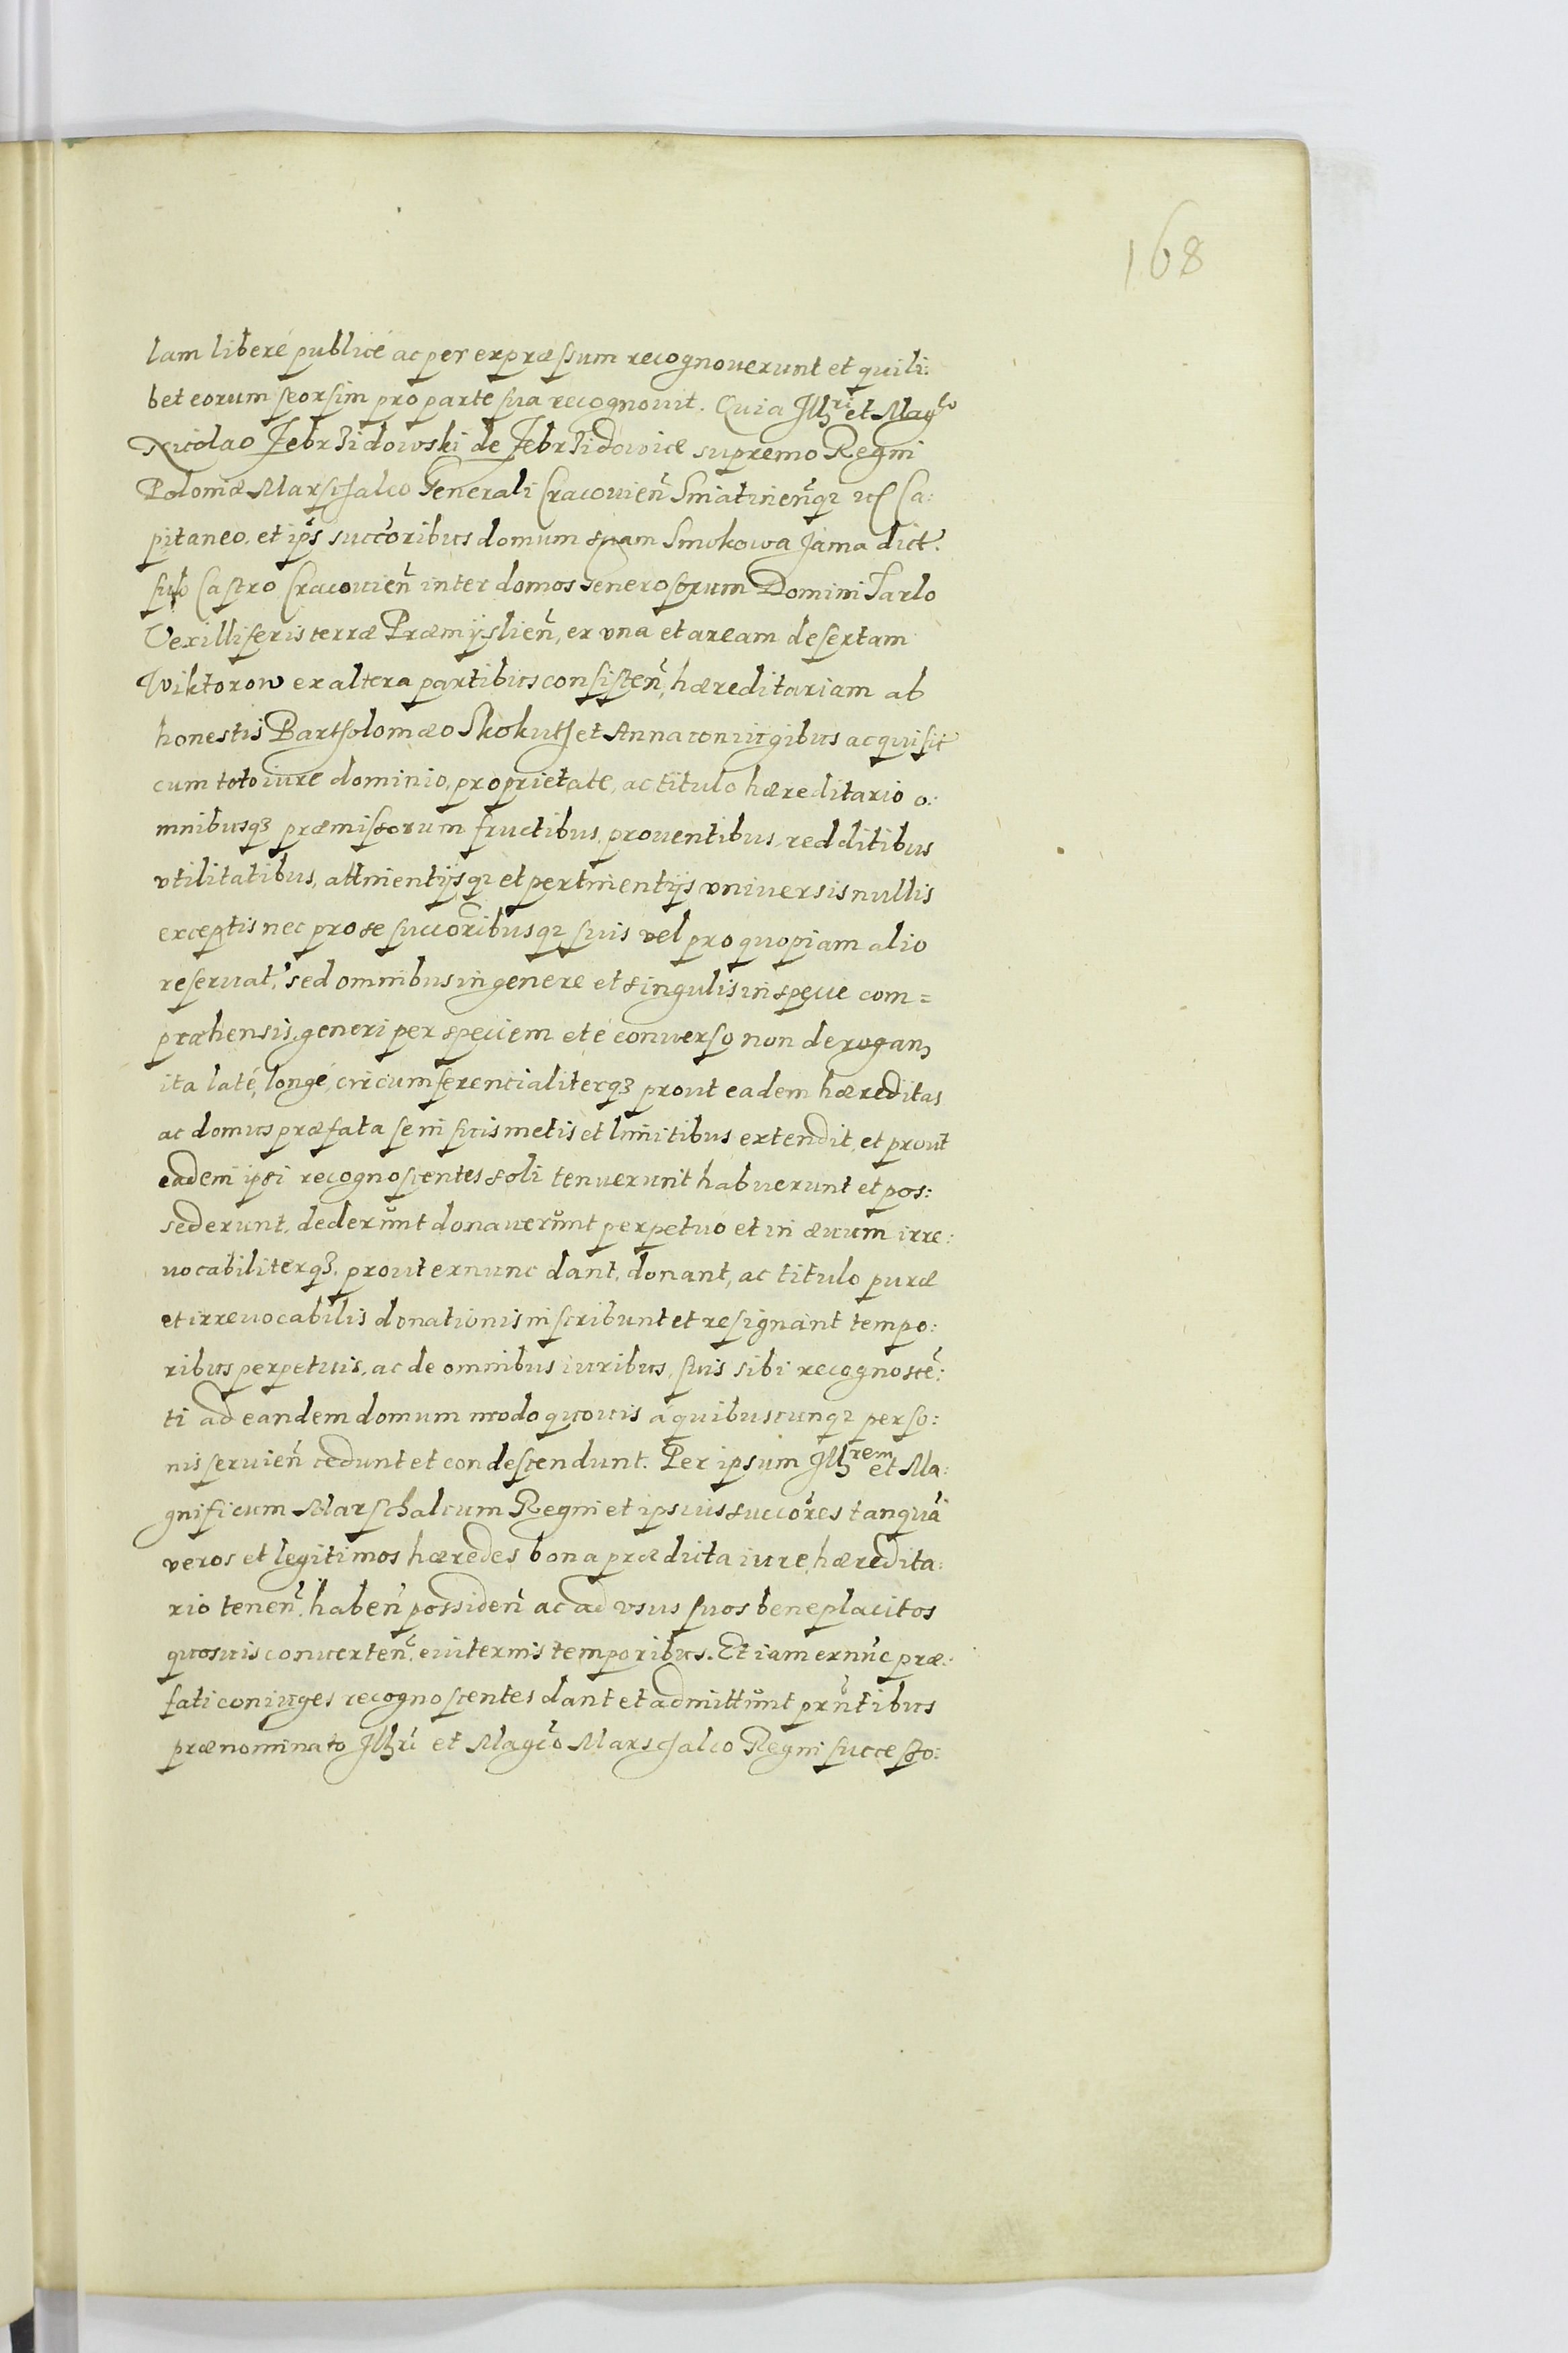 168
lam liberé publicé ac per expræssum recognouerunt et quili:
bet eorum seorsim pro parte sua recognouit. Quia Illri et Magco
Nicolao Zebrzidowski de Zebrzidowice supremo Regni
Poloniæ Marschalco Generali Cracouien̄ Sniatinen̄q3 etc Ca:
pitaneo, et ip̄s succ̄oribus domum suam Smokowa Jama dict.
sub Castro Cracouien̄ inter domos Generosorum Domini Tarlo
Vexilliferis terræ Præmÿslien̄, ex vna et aream desertam
Wiktorow ex altera partibus consisten̄, hæreditariam ab
honestis Bartholomæo Skokuth et Anna coniugibus acquisit
cum toto iure dominio, proprietate, ac titulo hæreditario o:
mnibusq3 præmissorum fructibus, prouentibus, redditibus
vtilitatibus, attinentijsq3 et pertinentijs vniuersis nullis
exceptis nec pro se succ̄oribusq3 suis vel pro quopiam alio
reseruat, sed omnibus in genere et singulis in specie com=
præhensis, generi per speciem et é conuerso non derogan,
ita laté, longé, circumferencialiterq3 prout eadem hæreditas
ac domus præfata se in suis metis et limitibus extendit, et prout
eadem ipsi recognoscentes soli tenuerunt habuerunt et pos:
sederunt, dederunt donauerunt perpetuó et in æuum irre:
uocabiliterq3, prout exnunc dant, donant, ac titulo puræ
et irreuocabilis donationis inscribunt et resignant tempo:
ribus perpetuis, ac de omnibus iuribus, suis sibi recognoscē:
ti ad eandem domum modo quouis á quibuscunq3 perso:
nis seruien̄ cedunt et condescendunt. Per ipsum Illrem et Ma:
gnificum Marschalcum Regni et ipsius succ̄ores tanquā
veros et legitimos hæredes bona prædicta iure, hæredita:
rio tenen̄, haben̄ possiden̄ ac ad vsus suos beneplacitos
quosuis conuerten̄, euiternis temporibus. Et iam exnūc præ:
fati coniuges recognoscentes dant et admittunt prn̄tibus
prænominato Illri et Magc̄o Marschalco Regni successo: